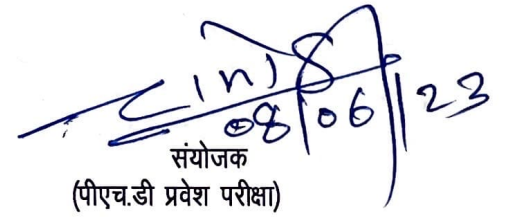 08/06/23
संयोजक
(पीएच.डी प्रवेश परीक्षा)